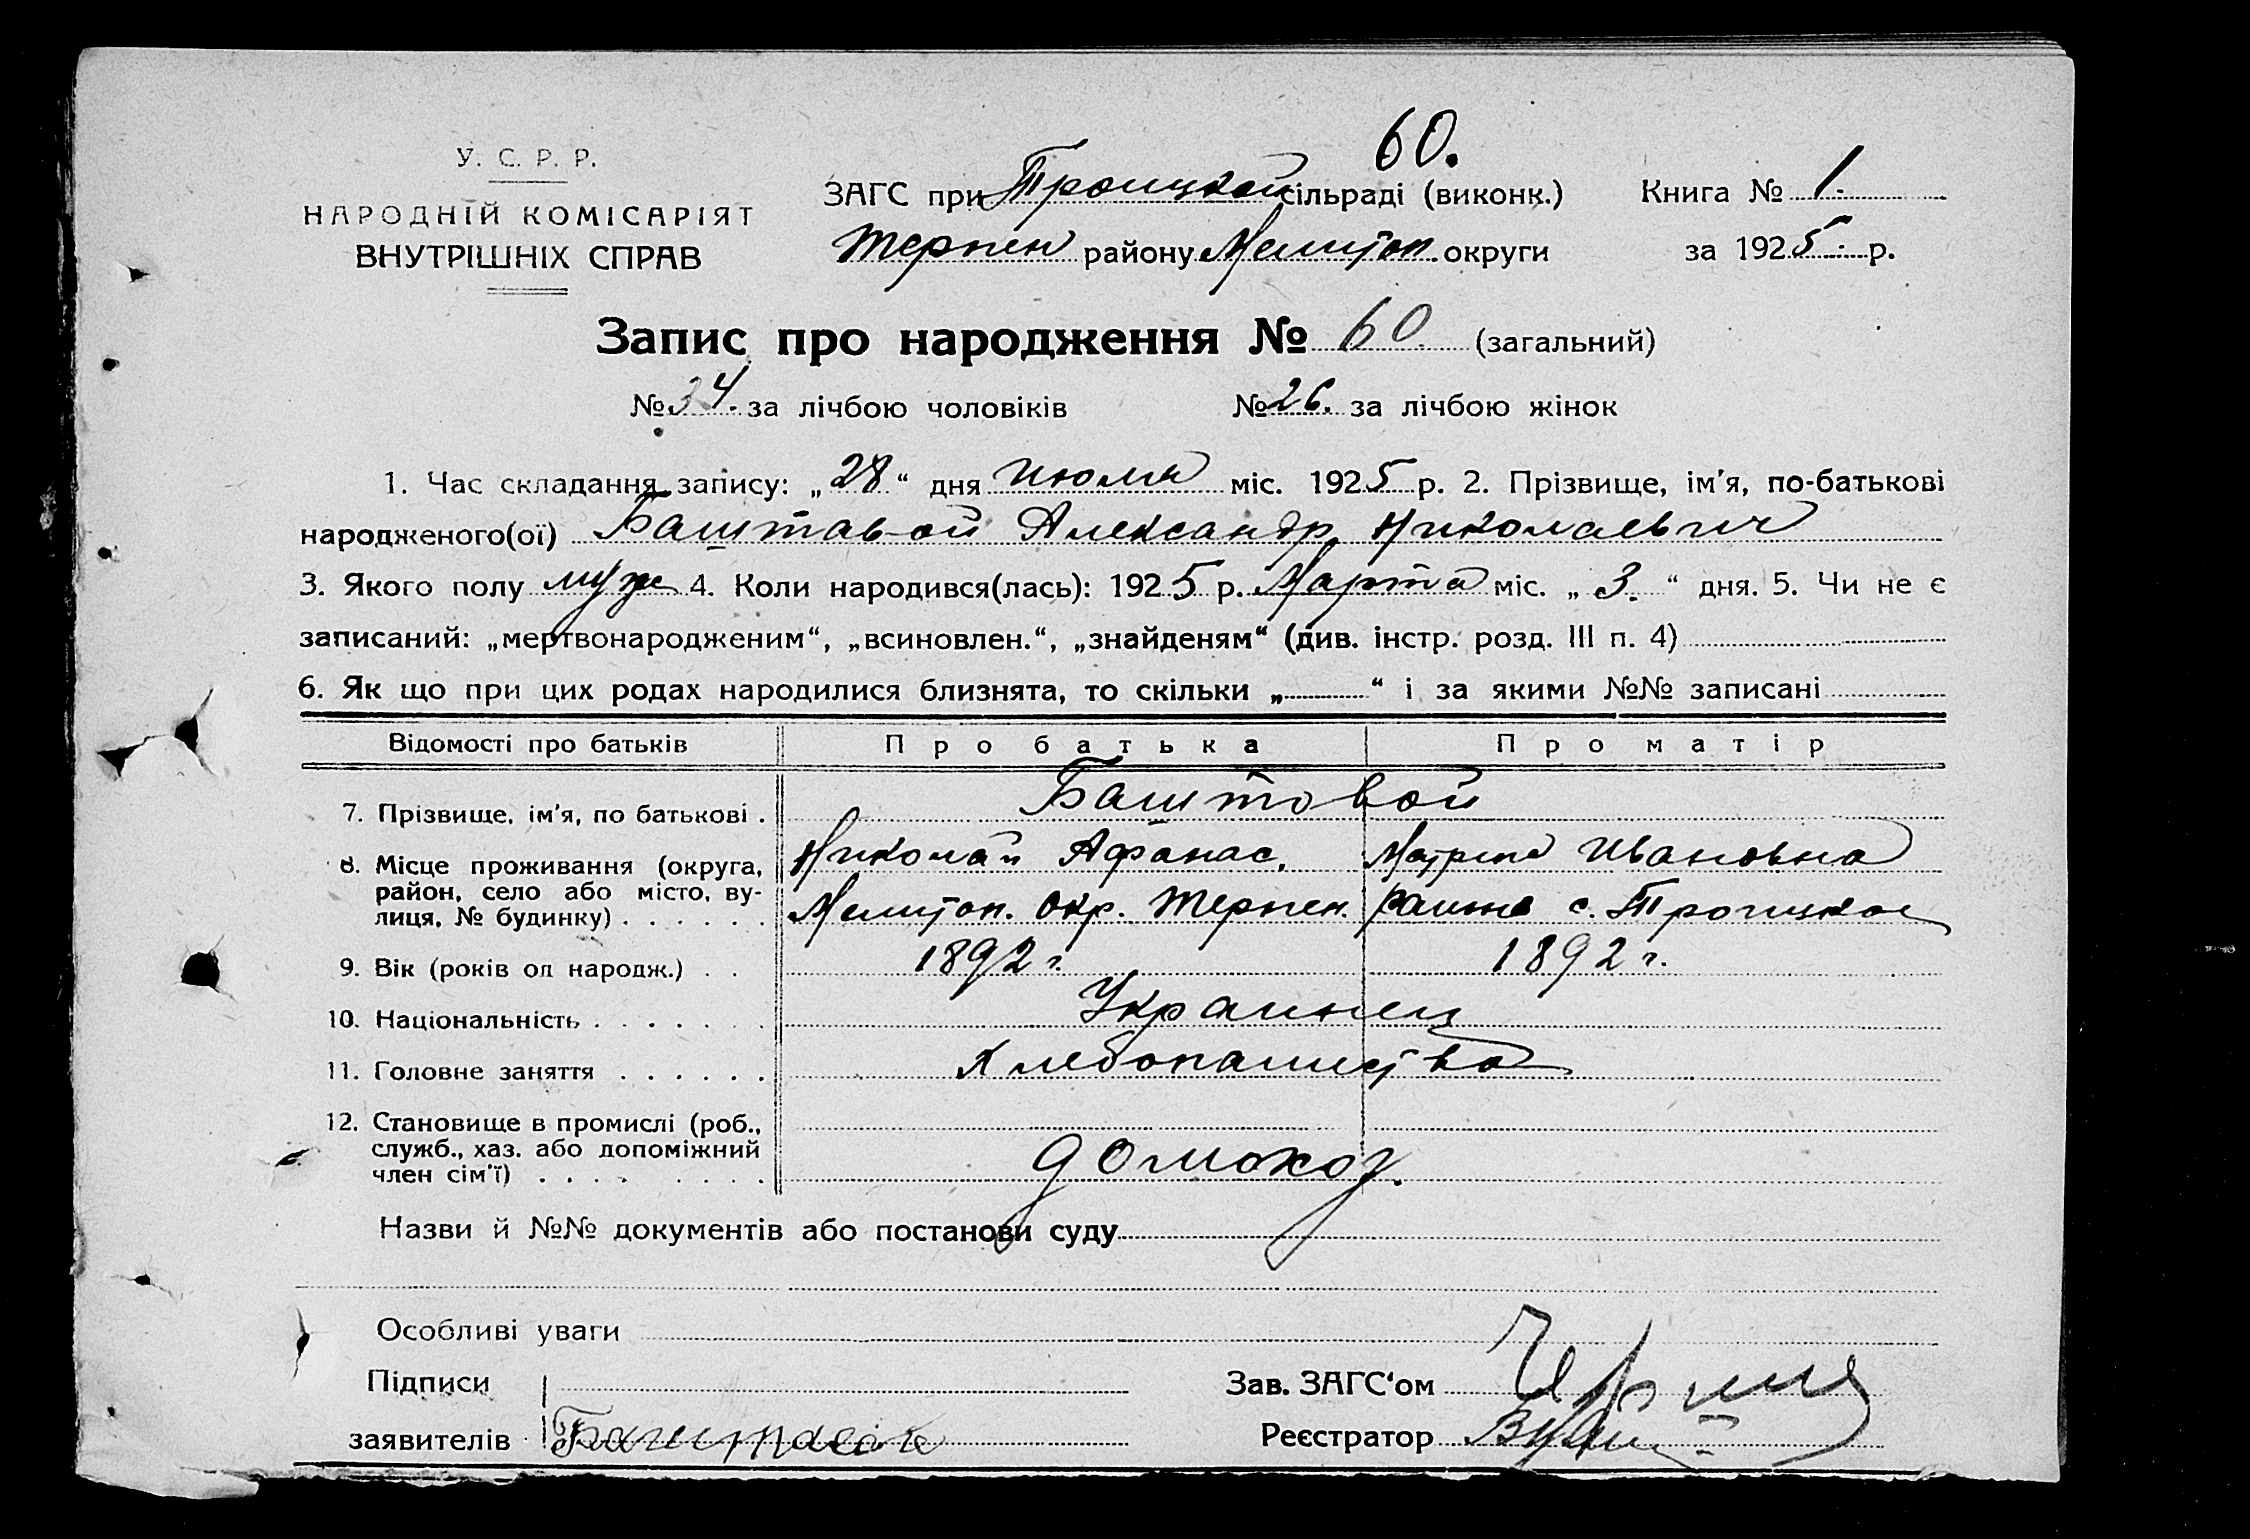 60.
У. С. Р. Р.
НАРОДНІЙ КОМІСАРІЯТ
ВНУТРІШНІХ СПРАВ
ЗАГС при Троицкой сільраді (виконк.)
Терпен району Мелитоп. округи
Книга № 1.
за 1925 р.
Запис про народження № 60. (загальний)
№ 34. за лічбою чоловіків № 26. за лічбою жінок
1. Час складання запису: „28“ дня июля міс. 1925 р. 2. Прізвище, ім'я, по-батькові
народженого(ої) Баштавой Александр Николаевич
3. Якого полу муж 4. Коли народився(лась): 1925 р. Марта міс. „3.“ дня. 5. Чи не є
записаний: „мертвонародженим“, „всиновлен.“, „знайденям“ (див. інстр. розд. III п. 4)
6. Як що при цих родах народилися близнята, то скільки „ “ і за якими №№ записані
Відомості про батьків Про батька Про матір
7. Прізвище, ім'я, по батькові . Баштовой
Николай Афанас. Матрена Ивановна
8. Місце проживання (округа,
район, село або місто, ву-
лиця, № будинку) . . . . . . Мелитоп. Окр. Терпен. района с. Троицкое
9. Вік (років од народж.) . . 1892 г. 1892 г.
10. Національність . . . . . . . Украинец
11. Головне заняття . . . . . . Хлебопашество
12. Становище в промислі (роб.,
служб., хаз. або допоміжний
член сім'ї) . . . . . . . . домохоз.
Назви й №№ документів або постанови суду
Особливі уваги
Підписи
заявителів Баштавой
Зав. ЗАГС‘ом
Реєстратор